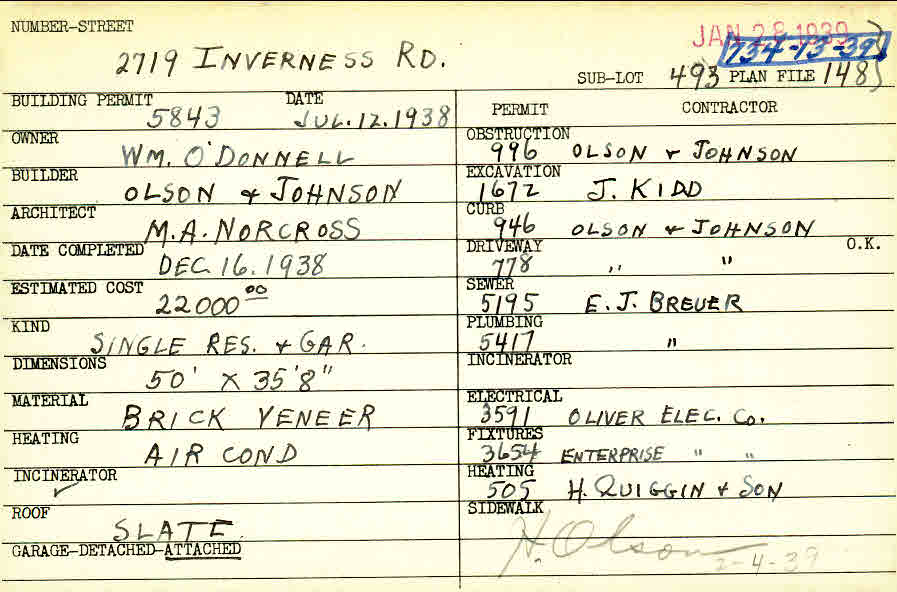 NUMBER-STREET
JAN 28 1939
2719 INVERNESS RD.
734-13-39
SUB-LOT 493 PLAN FILE 148
BUILDING PERMIT DATE
5843 JUL. 12. 1938
OWNER
WM. O'DONNELL
BUILDER
OLSON & JOHNSON
ARCHITECT
M.A. NORCROSS
DATE COMPLETED
DEC. 16. 1938
ESTIMATED COST
22000 00
KIND
SINGLE RES. & GAR.
DIMENSIONS
50' X 35'8"
MATERIAL
BRICK VENEER
HEATING
AIR COND
INCINERATOR
✓
ROOF
SLATE
GARAGE-DETACHED-ATTACHED
PERMIT CONTRACTOR
OBSTRUCTION
996 OLSON & JOHNSON
EXCAVATION
1672 J. KIDD
CURB
946 OLSON & JOHNSON
DRIVEWAY O.K.
778 ,, "
SEWER
5195 E. J. BREUER
PLUMBING
5417 "
INCINERATOR
ELECTRICAL
3591 OLIVER ELEC. Co.
FIXTURES
3654 ENTERPRISE " "
HEATING
505 H. QUIGGIN & SON
SIDEWALK
H. Olson
2-4-39